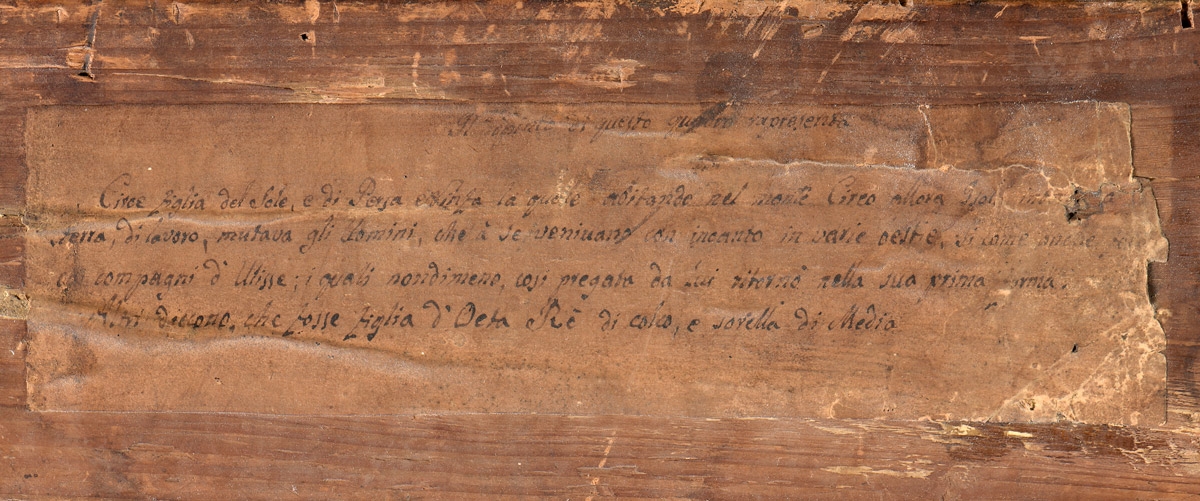 Il di questo quadro rapresenta
Circe figlia del Sole, e di Persa Ninfa la quale abitando nel monte Circeo allora Isola in
terra, di lavoro, mutava gli Uomini, che à se venivano con incanto in varie bestie, si come anche fece
compagni d'Ulisse; i quali nondimeno, così pregata da Lui ritornò nella sua prima forma.
Altri dicono, che fosse figlia d'Oeta Rè di colco, e sorella di Media